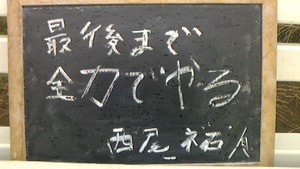 最後まで
全力でやる
西尾